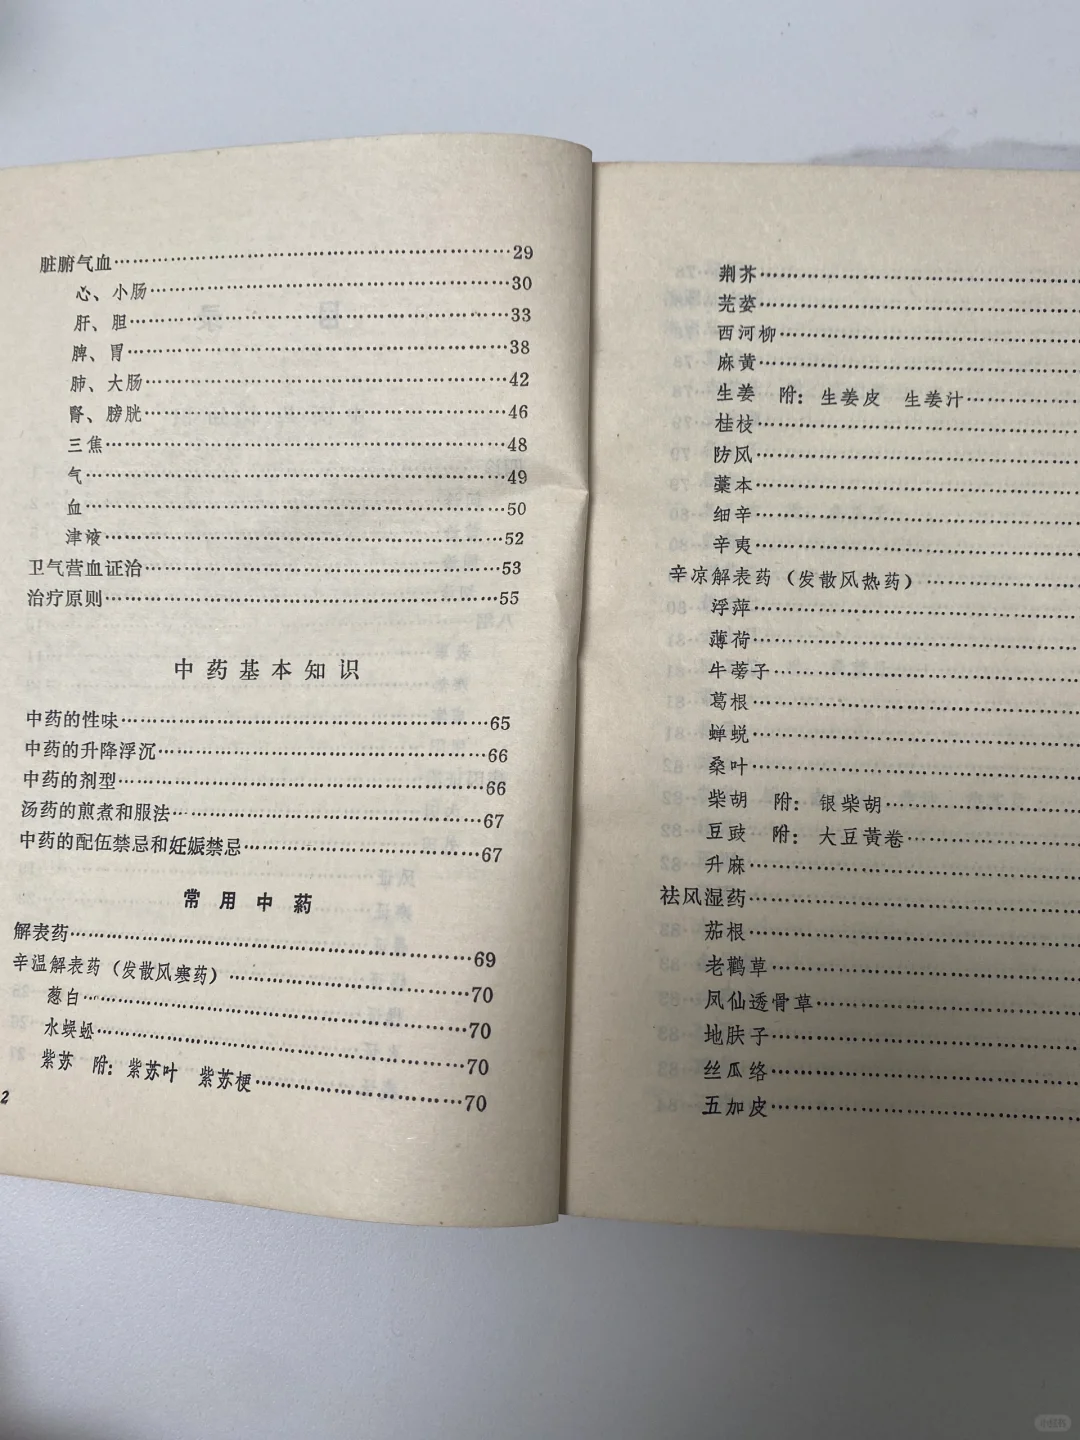 脏腑气血……29
心、小肠……30
肝、胆……33
脾、胃……38
肺、大肠……42
腎、膀胱……46
三焦……48
气……49
血……50
津液……52
卫气营血证治……53
治疗原则……55
中药基本知识
中药的性味……65
中药的升降浮沉……66
中药的剂型……66
汤药的煎煮和服法……67
中药的配伍禁忌和妊娠禁忌……67
常用中药
解表药……69
辛温解表药（发散风寒药）……70
葱白……70
水蜈蚣……70
紫苏 附：紫苏叶 紫苏梗……70
2
荆芥……
芫荽……
西河柳……
麻黄……
生姜 附：生姜皮 生姜汁……
桂枝……
防风……
藁本……
细辛……
辛夷……
辛凉解表药（发散风热药）……
浮萍……
薄荷……
牛蒡子……
葛根……
蝉蜕……
桑叶……
柴胡 附：银柴胡……
豆豉 附：大豆黄卷……
升麻……
祛风湿药……
茄根……
老鹳草……
凤仙透骨草……
地肤子……
丝瓜络……
五加皮……
小红书